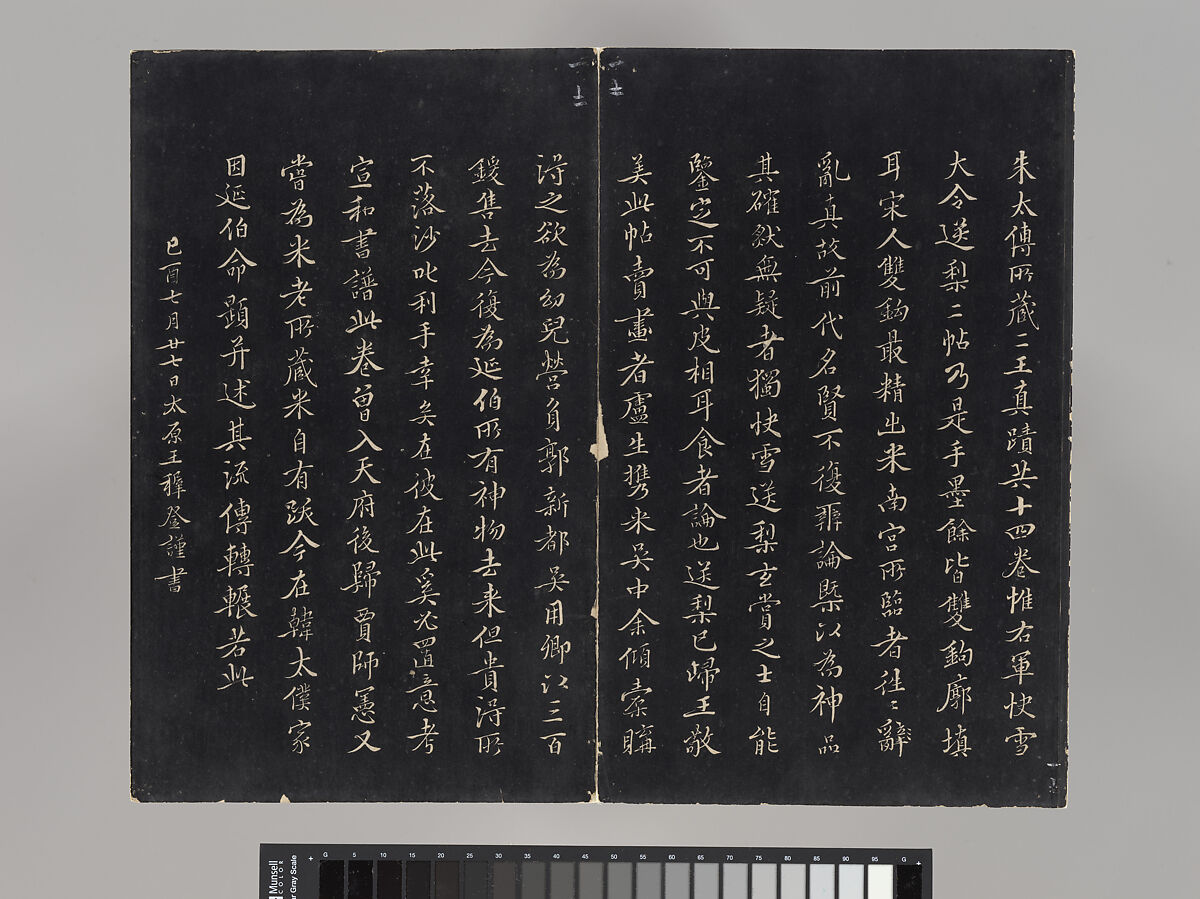 朱太傅所藏二王真蹟共十四卷惟右軍快雪
大令送梨二帖乃是手墨餘皆雙鉤廓填
耳宋人雙鉤最精出米南宮所臨者往〻辭
亂真故前代名賢不復辨論槩以為神品
其確然無疑者獨快雪送梨玄賞之士自能
鑒定不可與皮相耳食者論也送梨已歸王敬
美此帖賣畫者盧生攜來吳中余傾橐購
得之欲為幼兒營負郭新都吳用卿以三百
鍰售去今復為延伯所有神物去來但貴得所
不落沙吒利手幸矣在彼在此奚必置意考
宣和書譜此卷曾入天府後歸賈師憲又
嘗為米老所藏米自有跋今在韓太僕家
因延伯命題并述其流傳轉輾若此
己酉七月廿七日太原王穉登謹書
一
十二
一
十二
G 5 10 15 20 25 30 35 40 45 50 55 60 65 70 75 80 85 90 95 G
Munsell
COLOR
Gray Scale